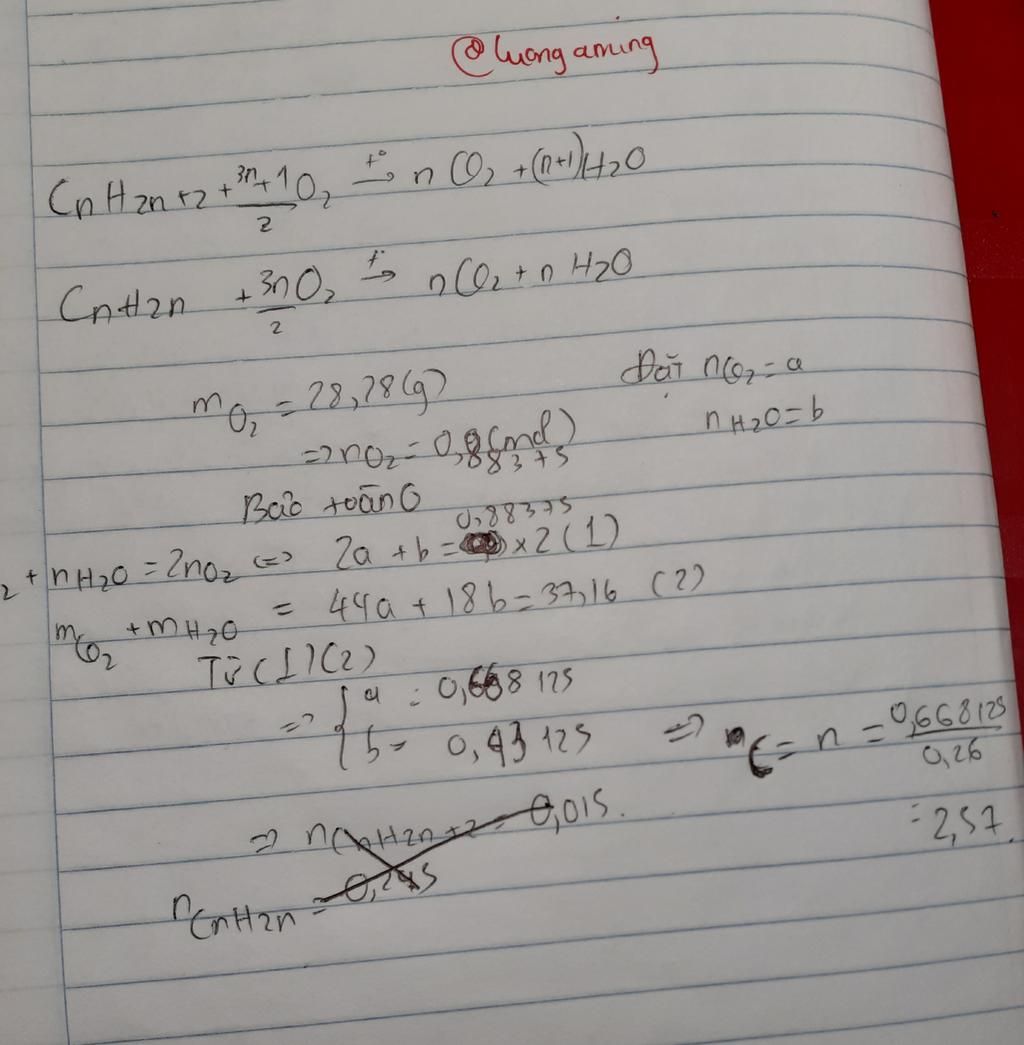 @luongaming
CnH2n+2 + 3n+1/2 O2 t°→ nCO2 + (n+1)H2O
CnH2n + 3n/2 O2 t°→ nCO2 + nH2O
mO2 = 28,28(g) Đặt nCO2 = a
=> nO2 = 0,88375 (mol) nH2O = b
Bảo toàn O
2 + nH2O = 2nO2 <=> 2a + b = 0,88375 x 2 (1)
mCO2 + mH2O = 44a + 18b = 37,16 (2)
Từ (1)(2)
=> { a = 0,668125
b = 0,43125 => nC = n = 0,668125/0,26
= 2,57.
=> nCnH2n+2 = 0,015.
nCnH2n = 0,245